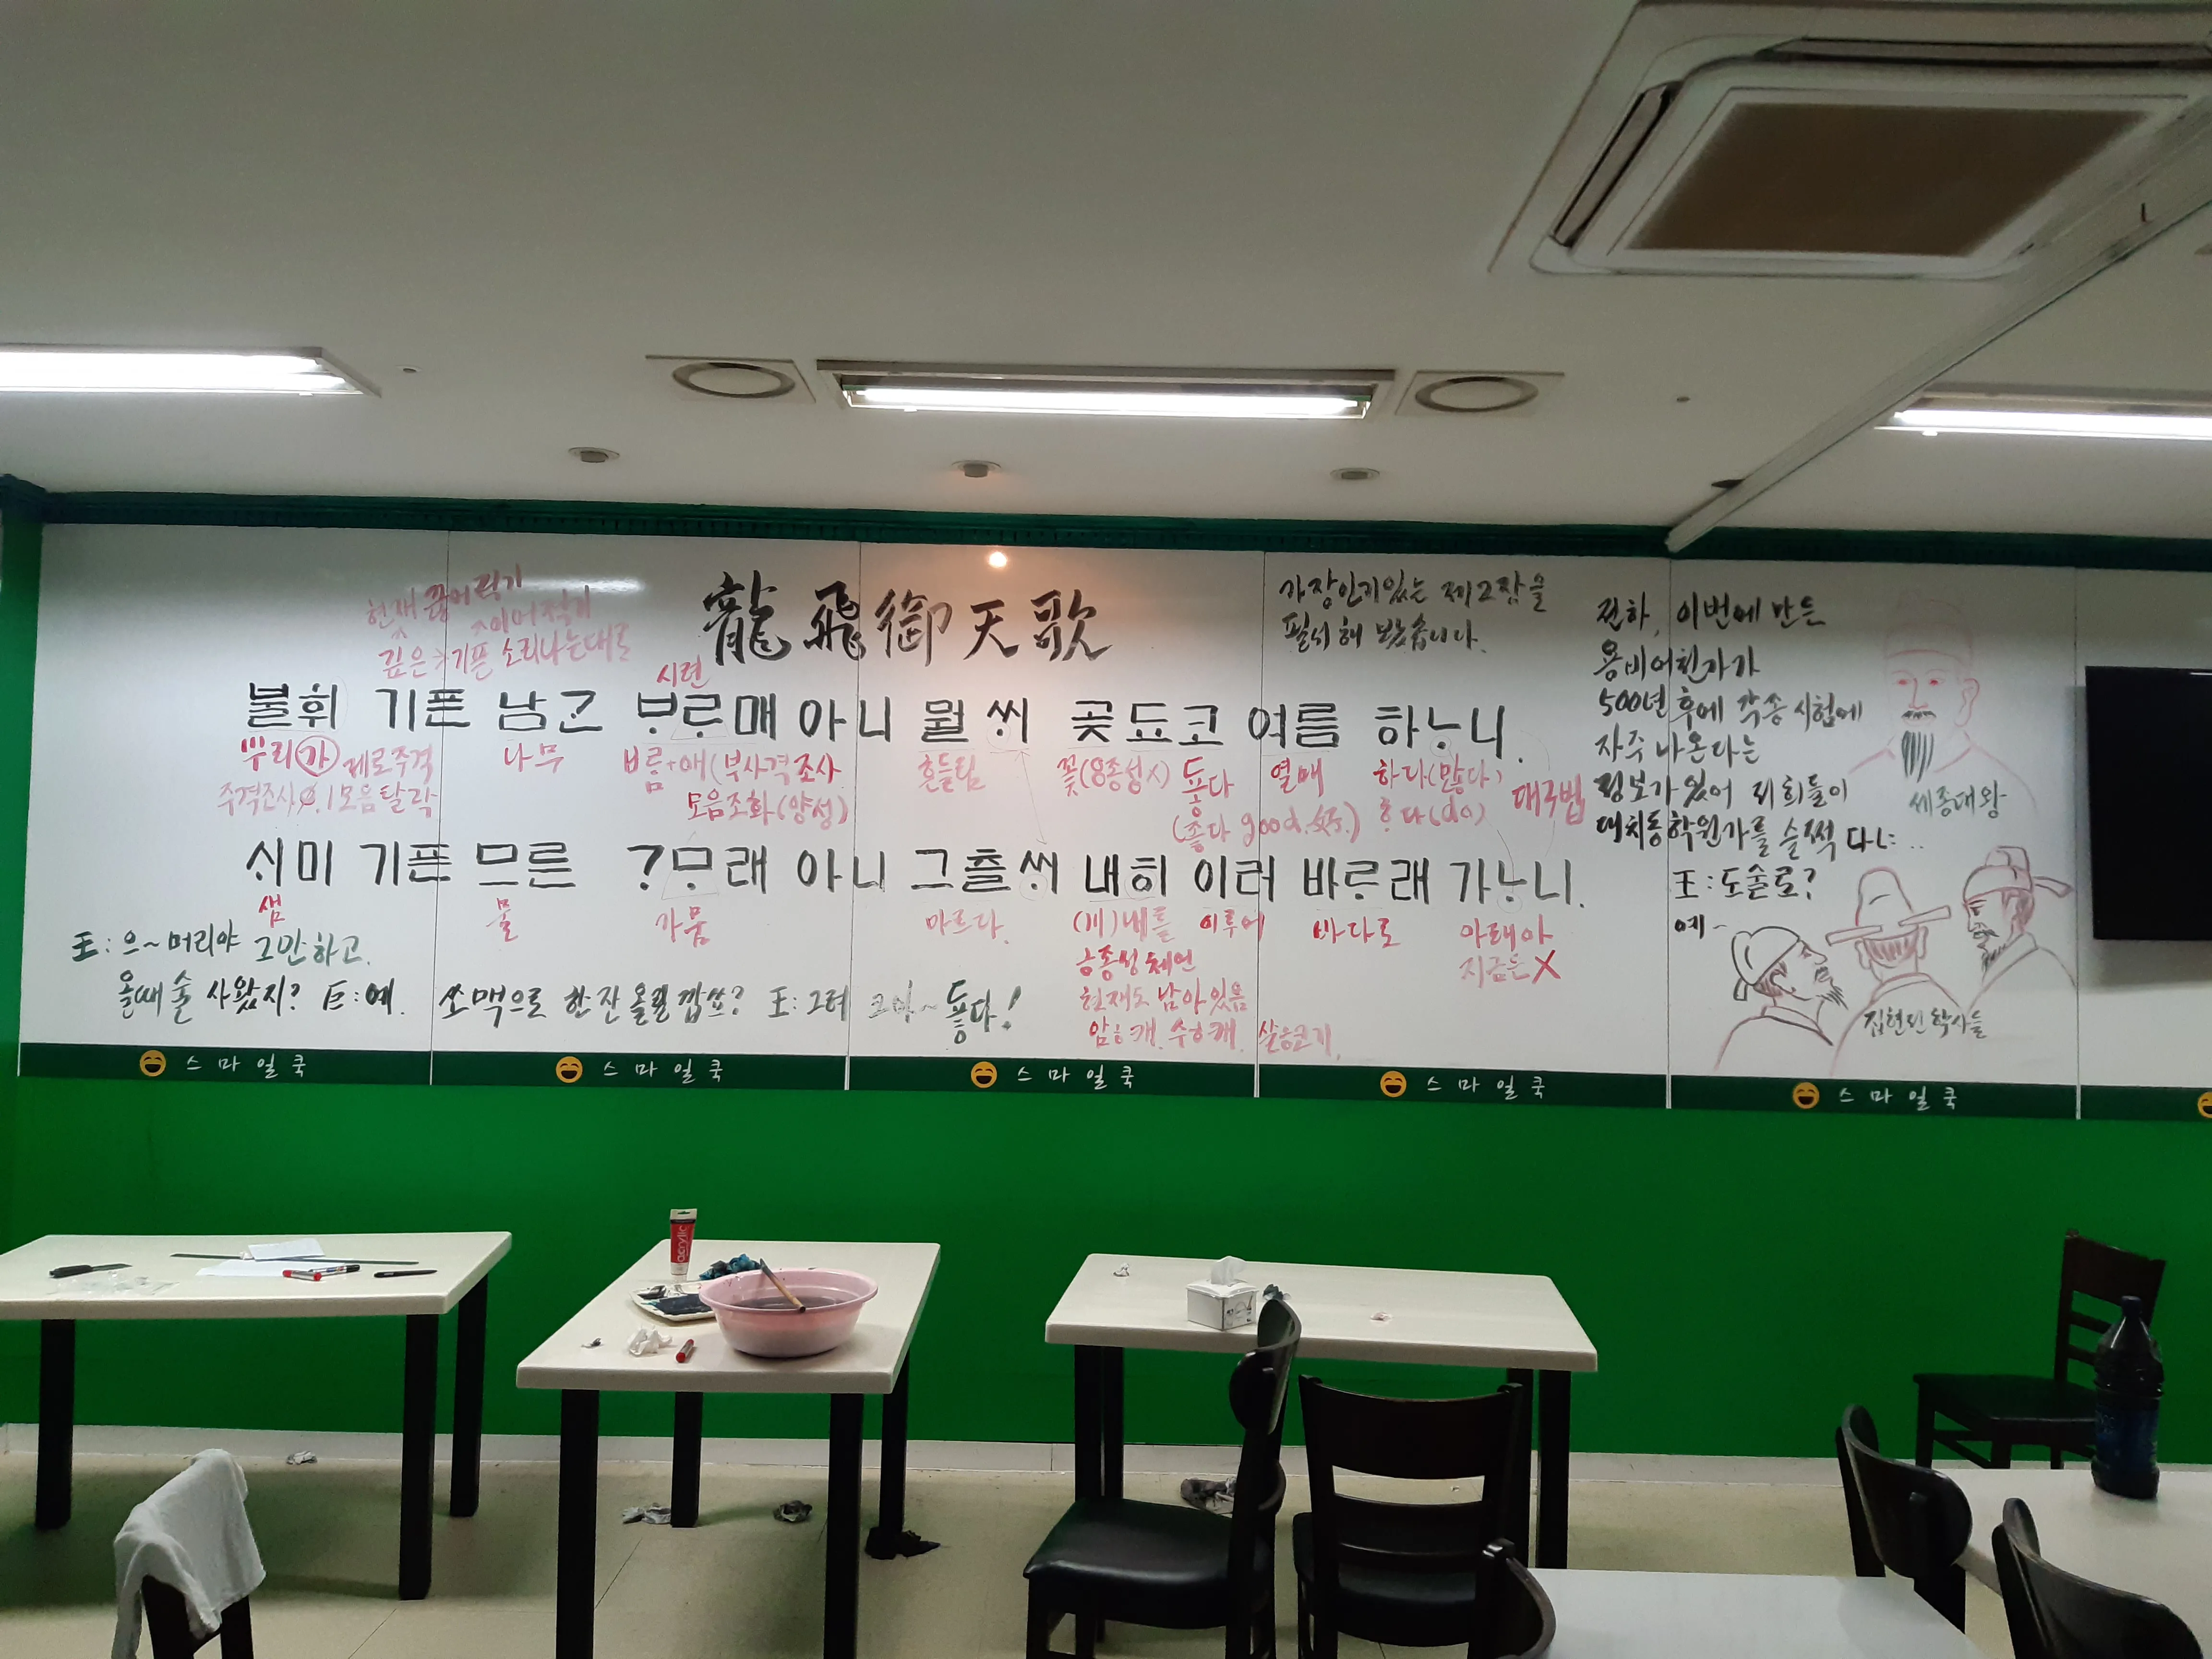 龍飛御天歌
가장인기있는 제2장을
필서해 보았습니다.
현재 끊어적기
이어적기
깊은>기픈 소리나는대로
시련
불휘 기픈 남ᄀᆞᆫ ᄇᆞᄅᆞ매 아니 뮐ᄊᆡ 곶 됴코 여름 하ᄂᆞ니.
뿌리가 제로주격 나무 ᄇᆞ름+애(부사격조사 흔들림 꽃(8종성시) 둏다 열매 하다(많다)
주격조사∅.ㅣ모음탈락 모음조화(양성) (좋다 good.好.) ᄒᆞ다(do) 대구법
ᄉᆡ미 기픈 므른 ?ᄆᆞ래 아니 그츨ᄊᆡ 내히 이러 바ᄅᆞ래 가ᄂᆞ니.
샘 물 가뭄 마르다. (川)내를 이루어 바다로 아래아
ㅎ종성체언 지금은X
현재도 남아있음
암ㅎ캐. 수ㅎ캐. 살ㅎ고기.
王: 으~머리야 그만하고.
올때 술 사왔지? 臣:예. 쏘맥으로 한잔 올릴깝쇼? 王: 그래 크아~ 둏다!
전하, 이번에 만든
용비어천가가
500년 후에 각종 시험에
자주 나온다는
정보가 있어 저희들이
대치동학원가를 슬쩍 다ㄴ..
王:도술로?
예~
세종대왕
집현전 학사들
스마일쿡
스마일쿡
스마일쿡
스마일쿡
스마일쿡
acrylic